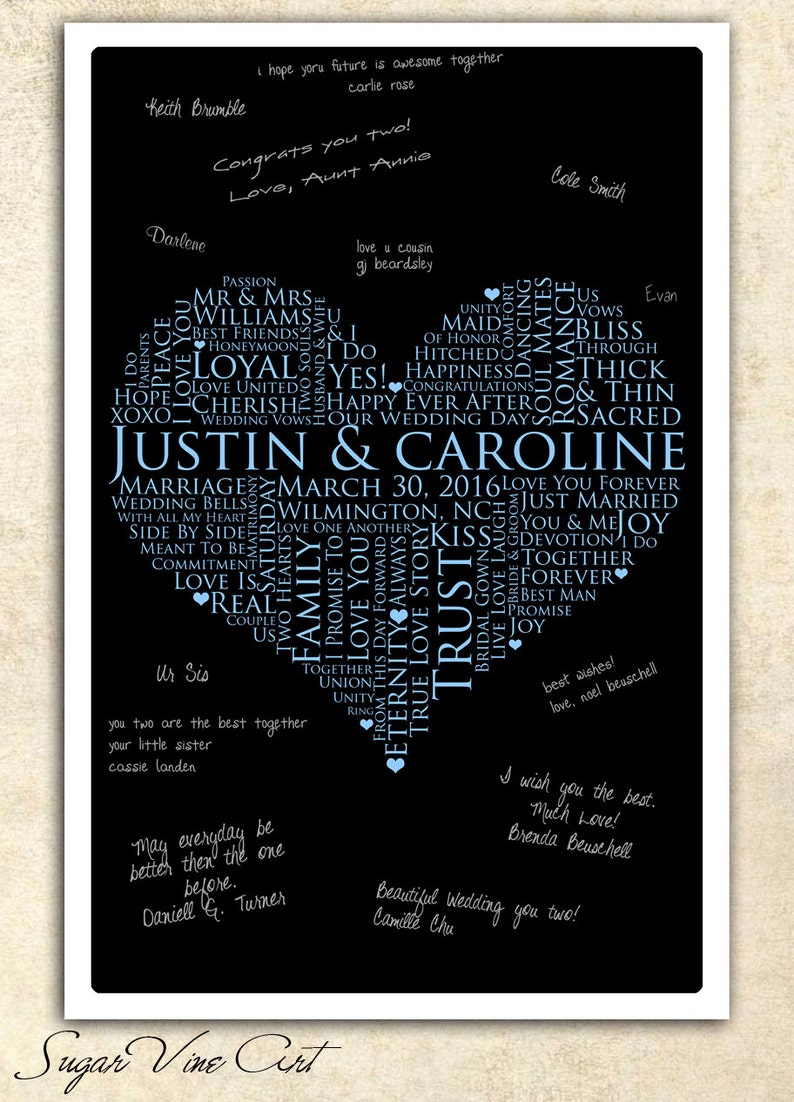 i hope yoru future is awesome together
carlie rose
Keith Brumble
Congrats you two!
Love, Aunt Annie
Cole Smith
Darlene
love u cousin
gj beardsley
Evan
Passion
Mr & Mrs
Williams
Best Friends
Honeymoon
Loyal
Love United
Cherish
Wedding Vows
I Do
Parents
Peace
Hope
XOXO
I Love You
Two Souls
Husband & Wife
U
& I
I Do
Yes!
Happy Ever After
Our Wedding Day
Unity
Maid
Of Honor
Hitched
Happiness
Congratulations
Comfort
Dancing
Soul Mates
Romance
Us
Vows
Bliss
Through
Thick
& Thin
Sacred
Justin & Caroline
Marriage
Wedding Bells
With All My Heart
Side By Side
Meant To Be
Commitment
Love Is
Real
Couple
Us
Matrimony
Saturday
Two Hearts
March 30, 2016
Wilmington, NC
Love One Another
Family
I Promise To
Love You
From This Day Forward
Always
Eternity
True Love Story
Kiss
Trust
Bridal Gown
Live Love Laugh
Bride & Groom
Love You Forever
Just Married
You & Me
Joy
Devotion
I Do
Together
Forever
Best Man
Promise
Joy
Together
Union
Unity
Ring
Ur Sis
best wishes!
love, noel beuschell
you two are the best together
your little sister
cassie landen
I wish you the best.
Much Love!
Brenda Beuschell
May everyday be
better then the one
before.
Daniell G. Turner
Beautiful Wedding you two!
Camille Chu
Sugar Vine Art